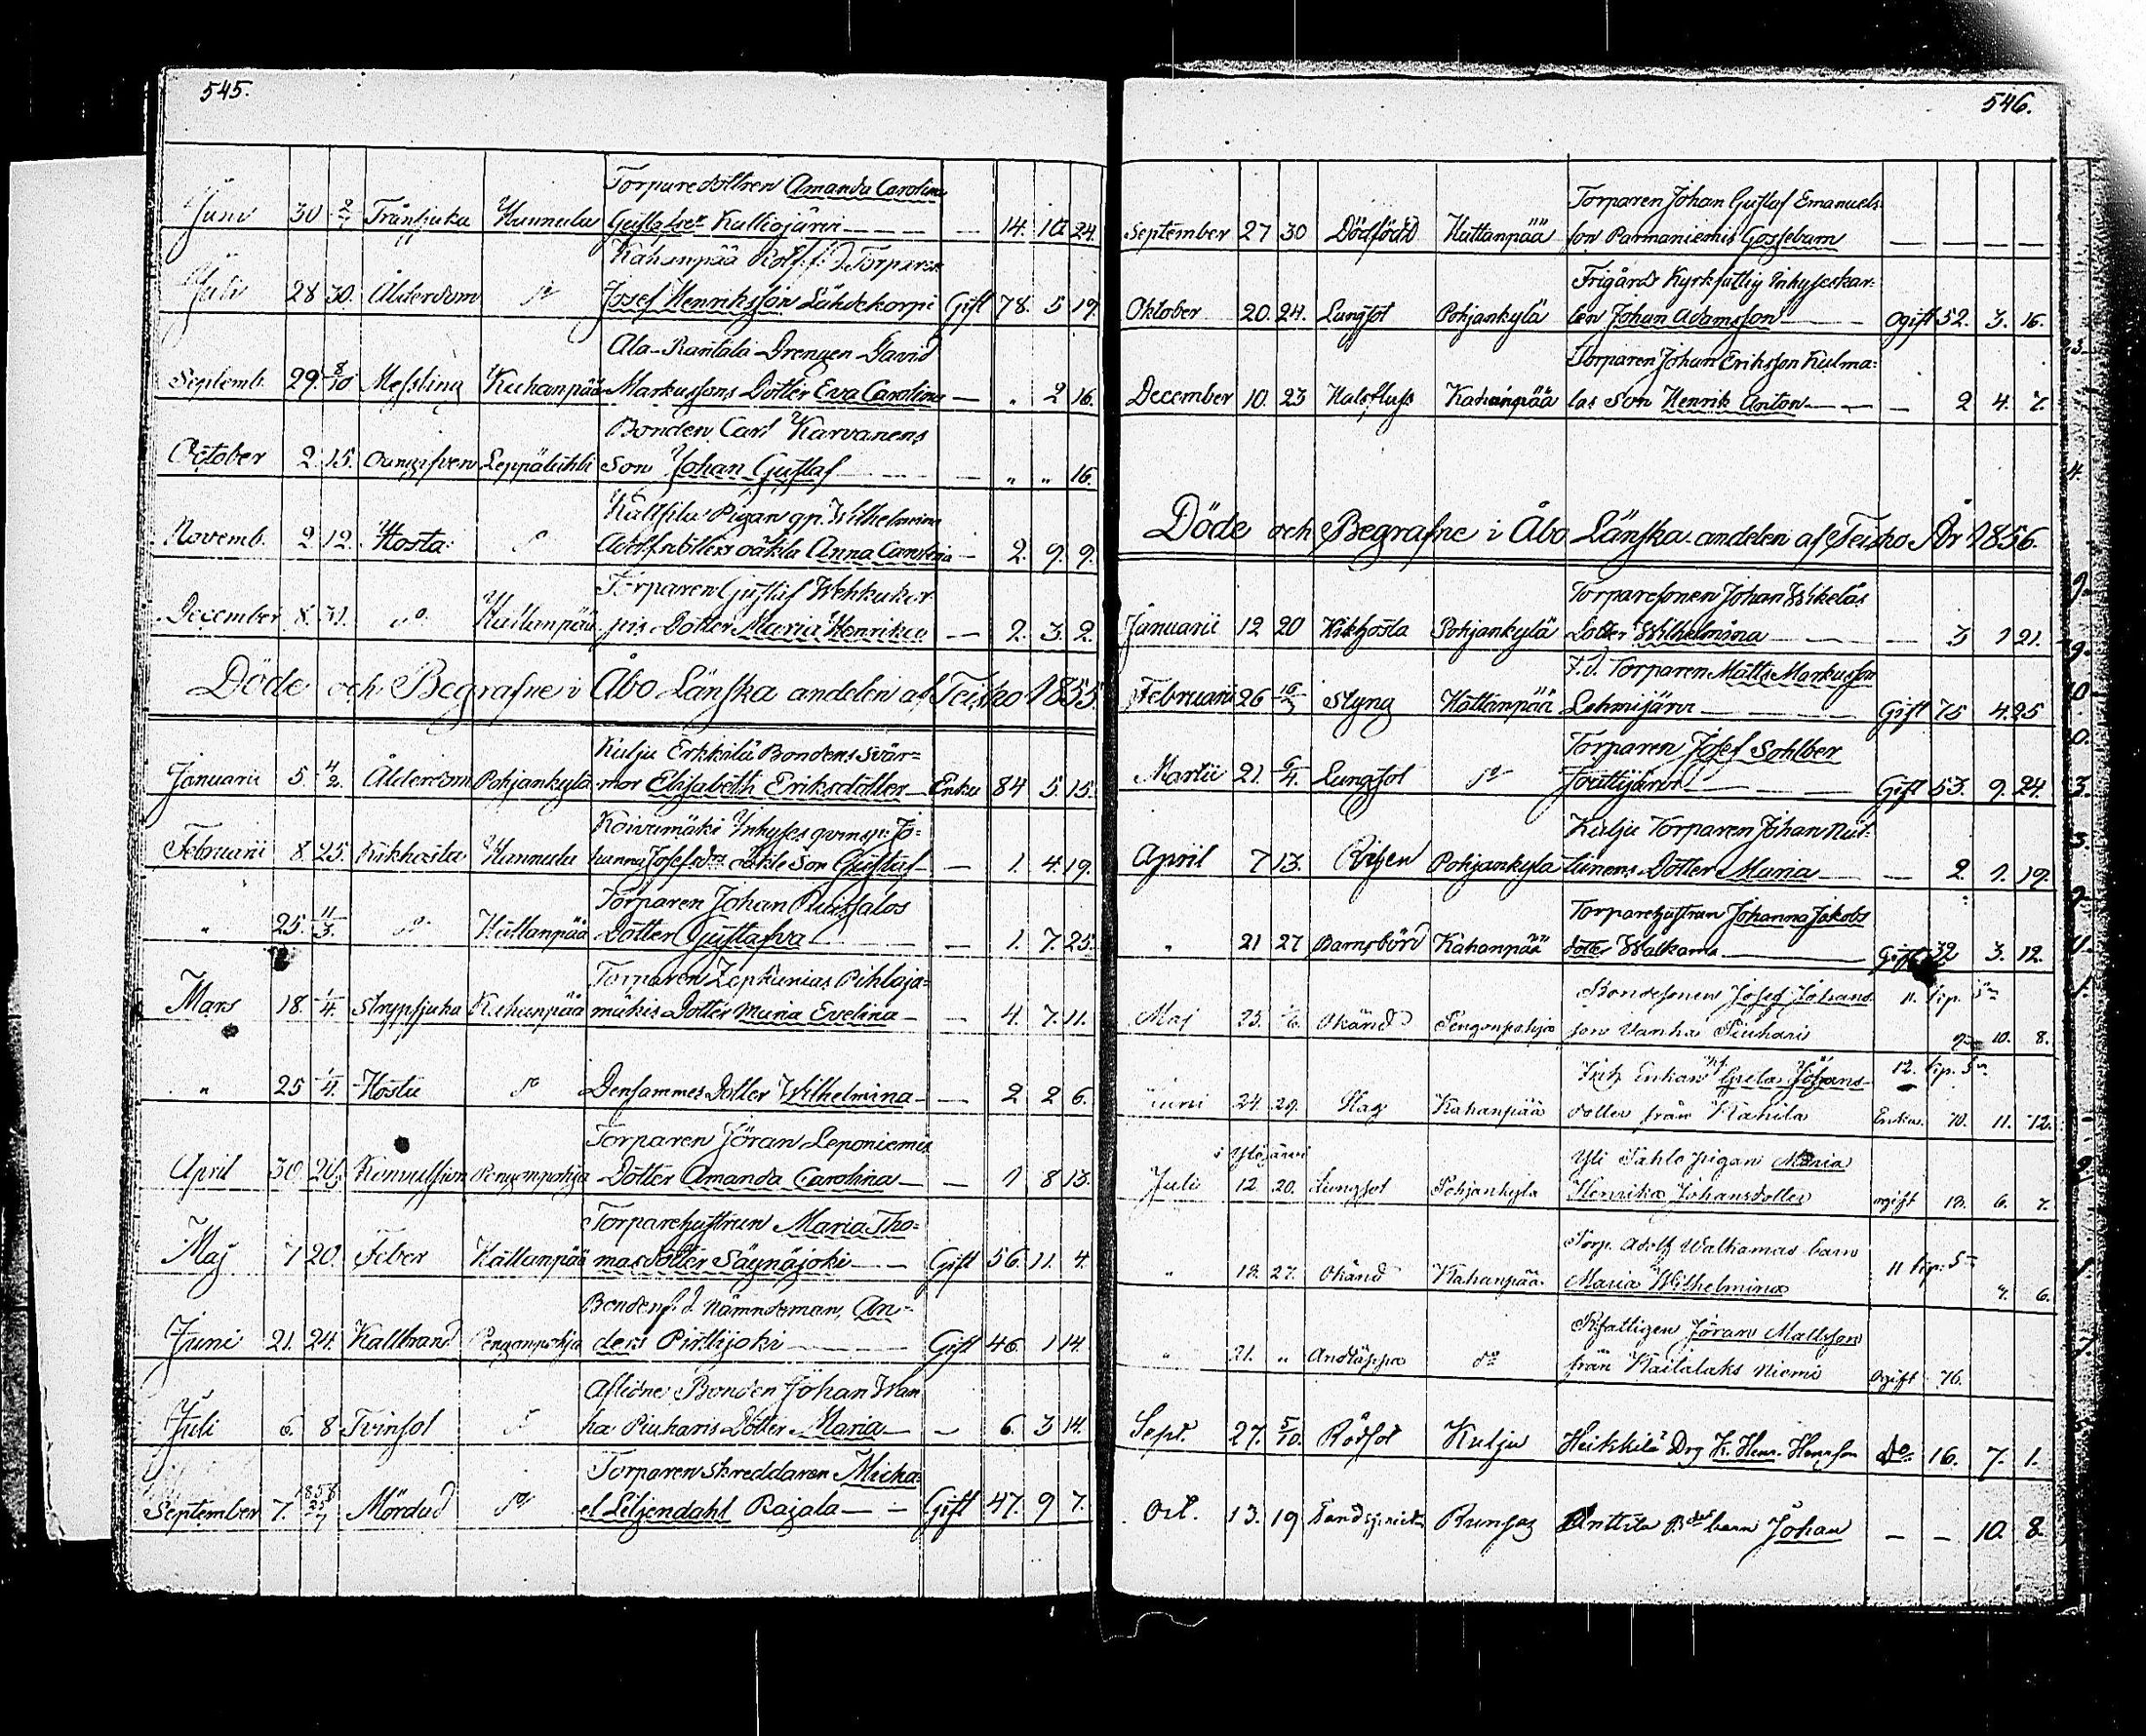 545.
Torparedottren Amanda Carolina
Juni 30 2/7 Tränsjuka Hunnula Gustafsdr Kalliojärvi — — 14. 10 24.
Kahanpää Rotef. f.d. Torparen
Juli 28 30. Ålderdom do Josef Henriksson Lähdekorpi Gift 78. 5 19.
Ala-Rantala Drengen David
Septemb. 29. 8/10 Messling Kahanpää Markussons Dotter Eva Carolina — " 2 16.
Bonden Carl Karvanens
October 2. 15. Leppälahti Son Johan Gustaf — — " " 16.
Pigan Wilhelmina
Novemb. 2 12. Hosta do Adolfsdotters oäkta Anna Carolina — 2. 9. 9.
Torparen Gustaf Wehkakor
December 8. 31. do Kattanpää pis Dotter Maria Henrika — 2. 3. 2.
Döde och Begrafne i Åbo Länska andelen af Teisko 1855.
Kulju Erkkilä Bondens Svär=
Januarii 5. 4/2. Ålderdom Pohjankylä mor Elisabeth Eriksdotter Enka 84 5 15.
Koivumäki Inhyses qvins: Jo=
Februarii 8. 25. Kikhosta Hunnula hanna Josefsdrs oäkta Son Gustaf — — 1. 4. 19.
Torparen Johan Ruotsalos
" 25. 11/3. do Kattanpää Dotter Gustafva — — 1. 7. 25.
Torparen Zephanias Pihlaja=
Mars 18. 1/4. Strypsjuka Kahanpää mäkis Dotter Maria Evelina — — 4. 7. 11.
" 25 1/4. Hosta do Densammes Dotter Wilhelmina — — 2 2 6.
Torparen Jöran Leponiemis
April 30 Konvulsion Pengonpohja Dotter Amanda Carolina — — 1 8 13.
Torparehustrun Maria Tho=
Maj 7 20. Feber Kattanpää masdotter Säynäjoki — Gift 56. 11. 4.
Bonden f.d. Nämndeman, An=
Juni 21. 24. Kallbrand Pengonpohja ders Pirttijoki — Gift 46. 1 14.
Aflidne Bonden Johan Wan
Juli 6. 8 Tvinsot do ha Piuharis Dotter Maria — — 6. 3 14.
Torparen Skreddaren Micha
September 7. Mördad do el Liljendahl Rajala — Gift 47. 9 7.
546.
Torparen Johan Gustaf Emanuels
September 27 30 Dödfödd Kattanpää son Parmaniemis Gossebarn — — — —
Frigårds Kyrkfattig Inhyseskar=
Oktober 20. 24. Lungsot Pohjankylä len Johan Adamsson — Ogift 52. 3. 16.
Torparen Johan Eriksson Kulma=
December 10. 23 Halsfluss Kahanpää las Son Henrik Anton — — 2 4. 7.
Döde och Begrafne i Åbo Länska andelen af Teisko År 1856.
Torparesonen Johan Wikelas
Januarii 12 20 Kikhosta Pohjankylä Dotter Wilhelmina — — 3 1 21.
F.d. Torparen Matts Markusson
Februarii 26 16/3 Styng Kattanpää Lehmijärvi — Gift 75 4. 25
Torparen Josef Sohlber
Martii 21. 6/4. Lungsot do — Gift 53. 9. 24.
Kulju Torparen Johan Nut=
April 7 13. Risen Pohjankylä Dotter Maria — — 2. 1. 19.
Torparehustrun Johanna Jakobs
" 21 27 Barnsbörd Kahanpää dotter Walkama — Gift 32 3. 12.
Bondesonen Josef Johans
Maj 25. 1/6. Okänd Pengonpohja son Vanha Piuharis 10. 8.
Enkan Greta Johans
Juni 24. 29. Slag Kahanpää dotter från Kahila Enka. 70. 11. 12.
i Ylöjärvi Yli Pahlo pigan Maria
Juli 12. 20. Lungsot Pohjankylä Henrika Johansdotter ogift 18. 6. 7.
Torp. Adolf Walkamas barn
" 18. 27. Okänd Kahanpää Maria Wilhelmina 6.
Fattigen Jöran Mattsson
" 21. " Andtäppa do från Kaitalaks Niemi Ogift 76.
Sept. 27. 5/10. Rödsot Kulju Heikkilä Drg K. Henr. Henrson Do 16. 7. 1.
Oct. 13. 19 Anttila barn Johan — — 10. 8.